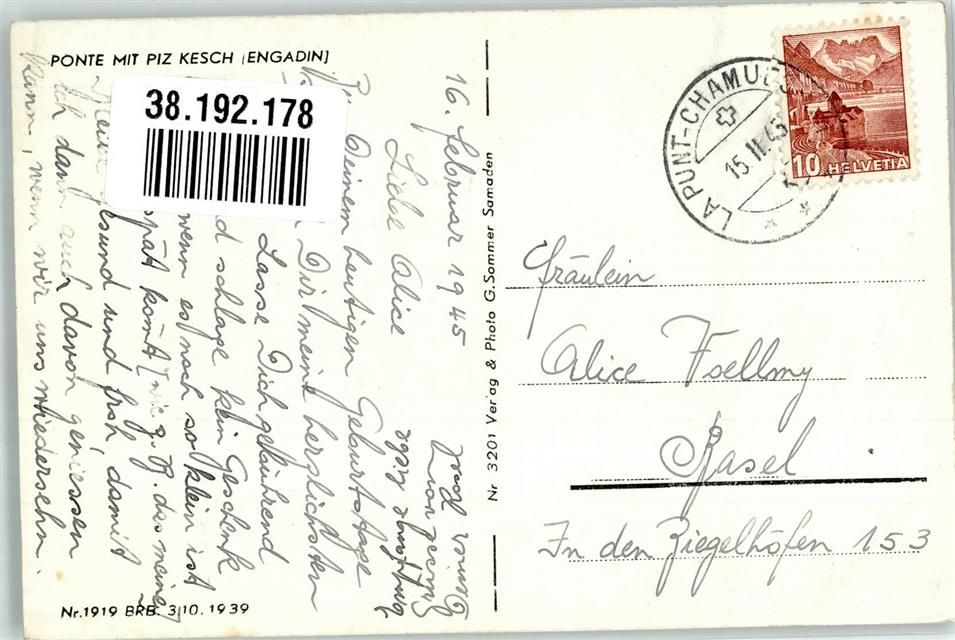 PONTE MIT PIZ KESCH (ENGADIN)
38.192.178
16. Februar 1945
Liebe Alice
Deinem heutigen Geburtstage
Dir meine herzlichsten
Lasse Dich gebührend
d schlage kein Geschenk
wenn es noch so klein ist
spät komt (wie z. B. das meine)
gesund und froh, damit
ich dann auch davon geniessen
kann, wenn wir uns wiedersehn.
Nr. 1919 BRB. 3.10.1939
Nr 3201 Verlag & Photo G. Sommer Samaden
LA PUNT-CHAMUES
15. II. 45
10 HELVETIA
Fräulein
Alice Voellmy
Basel
In den Ziegelhöfen 153